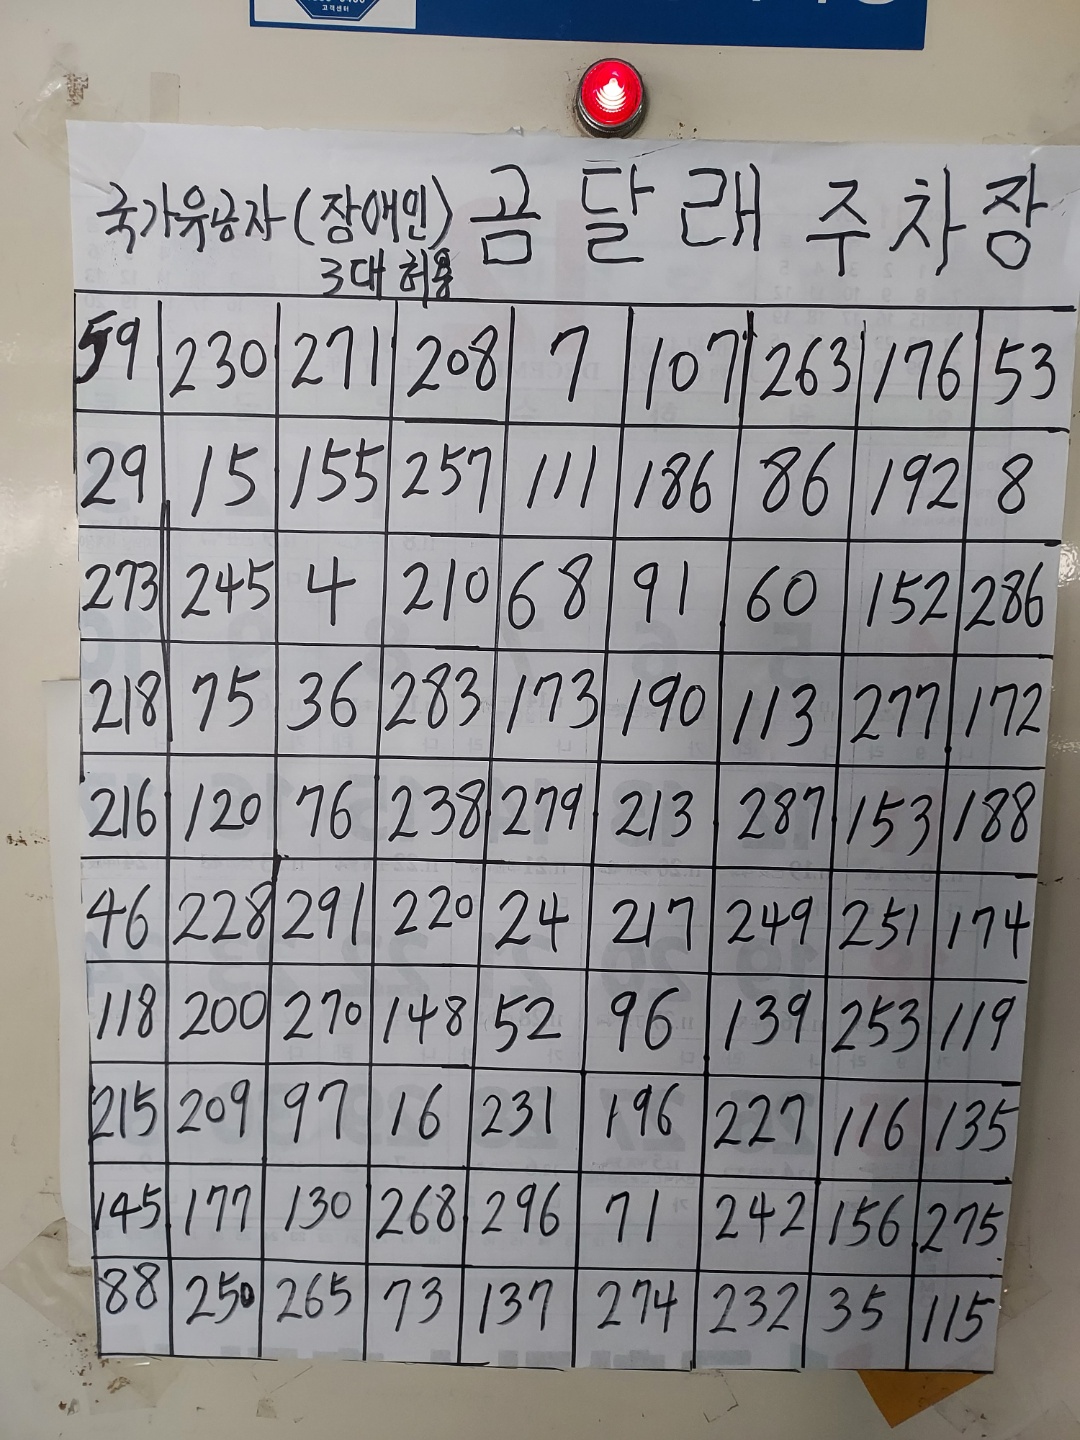 고객센터
국가유공자(장애인) 곰달래 주차장
3대 허용
59 230 271 208 7 107 263 176 53
29 15 155 257 111 186 86 192 8
273 245 4 210 68 91 60 152 286
218 75 36 283 173 190 113 277 172
216 120 76 238 279 213 287 153 188
46 228 291 220 24 217 249 251 174
118 200 270 148 52 96 139 253 119
215 209 97 16 231 196 227 116 135
145 177 130 268 296 71 242 156 275
88 250 265 73 137 274 232 35 115